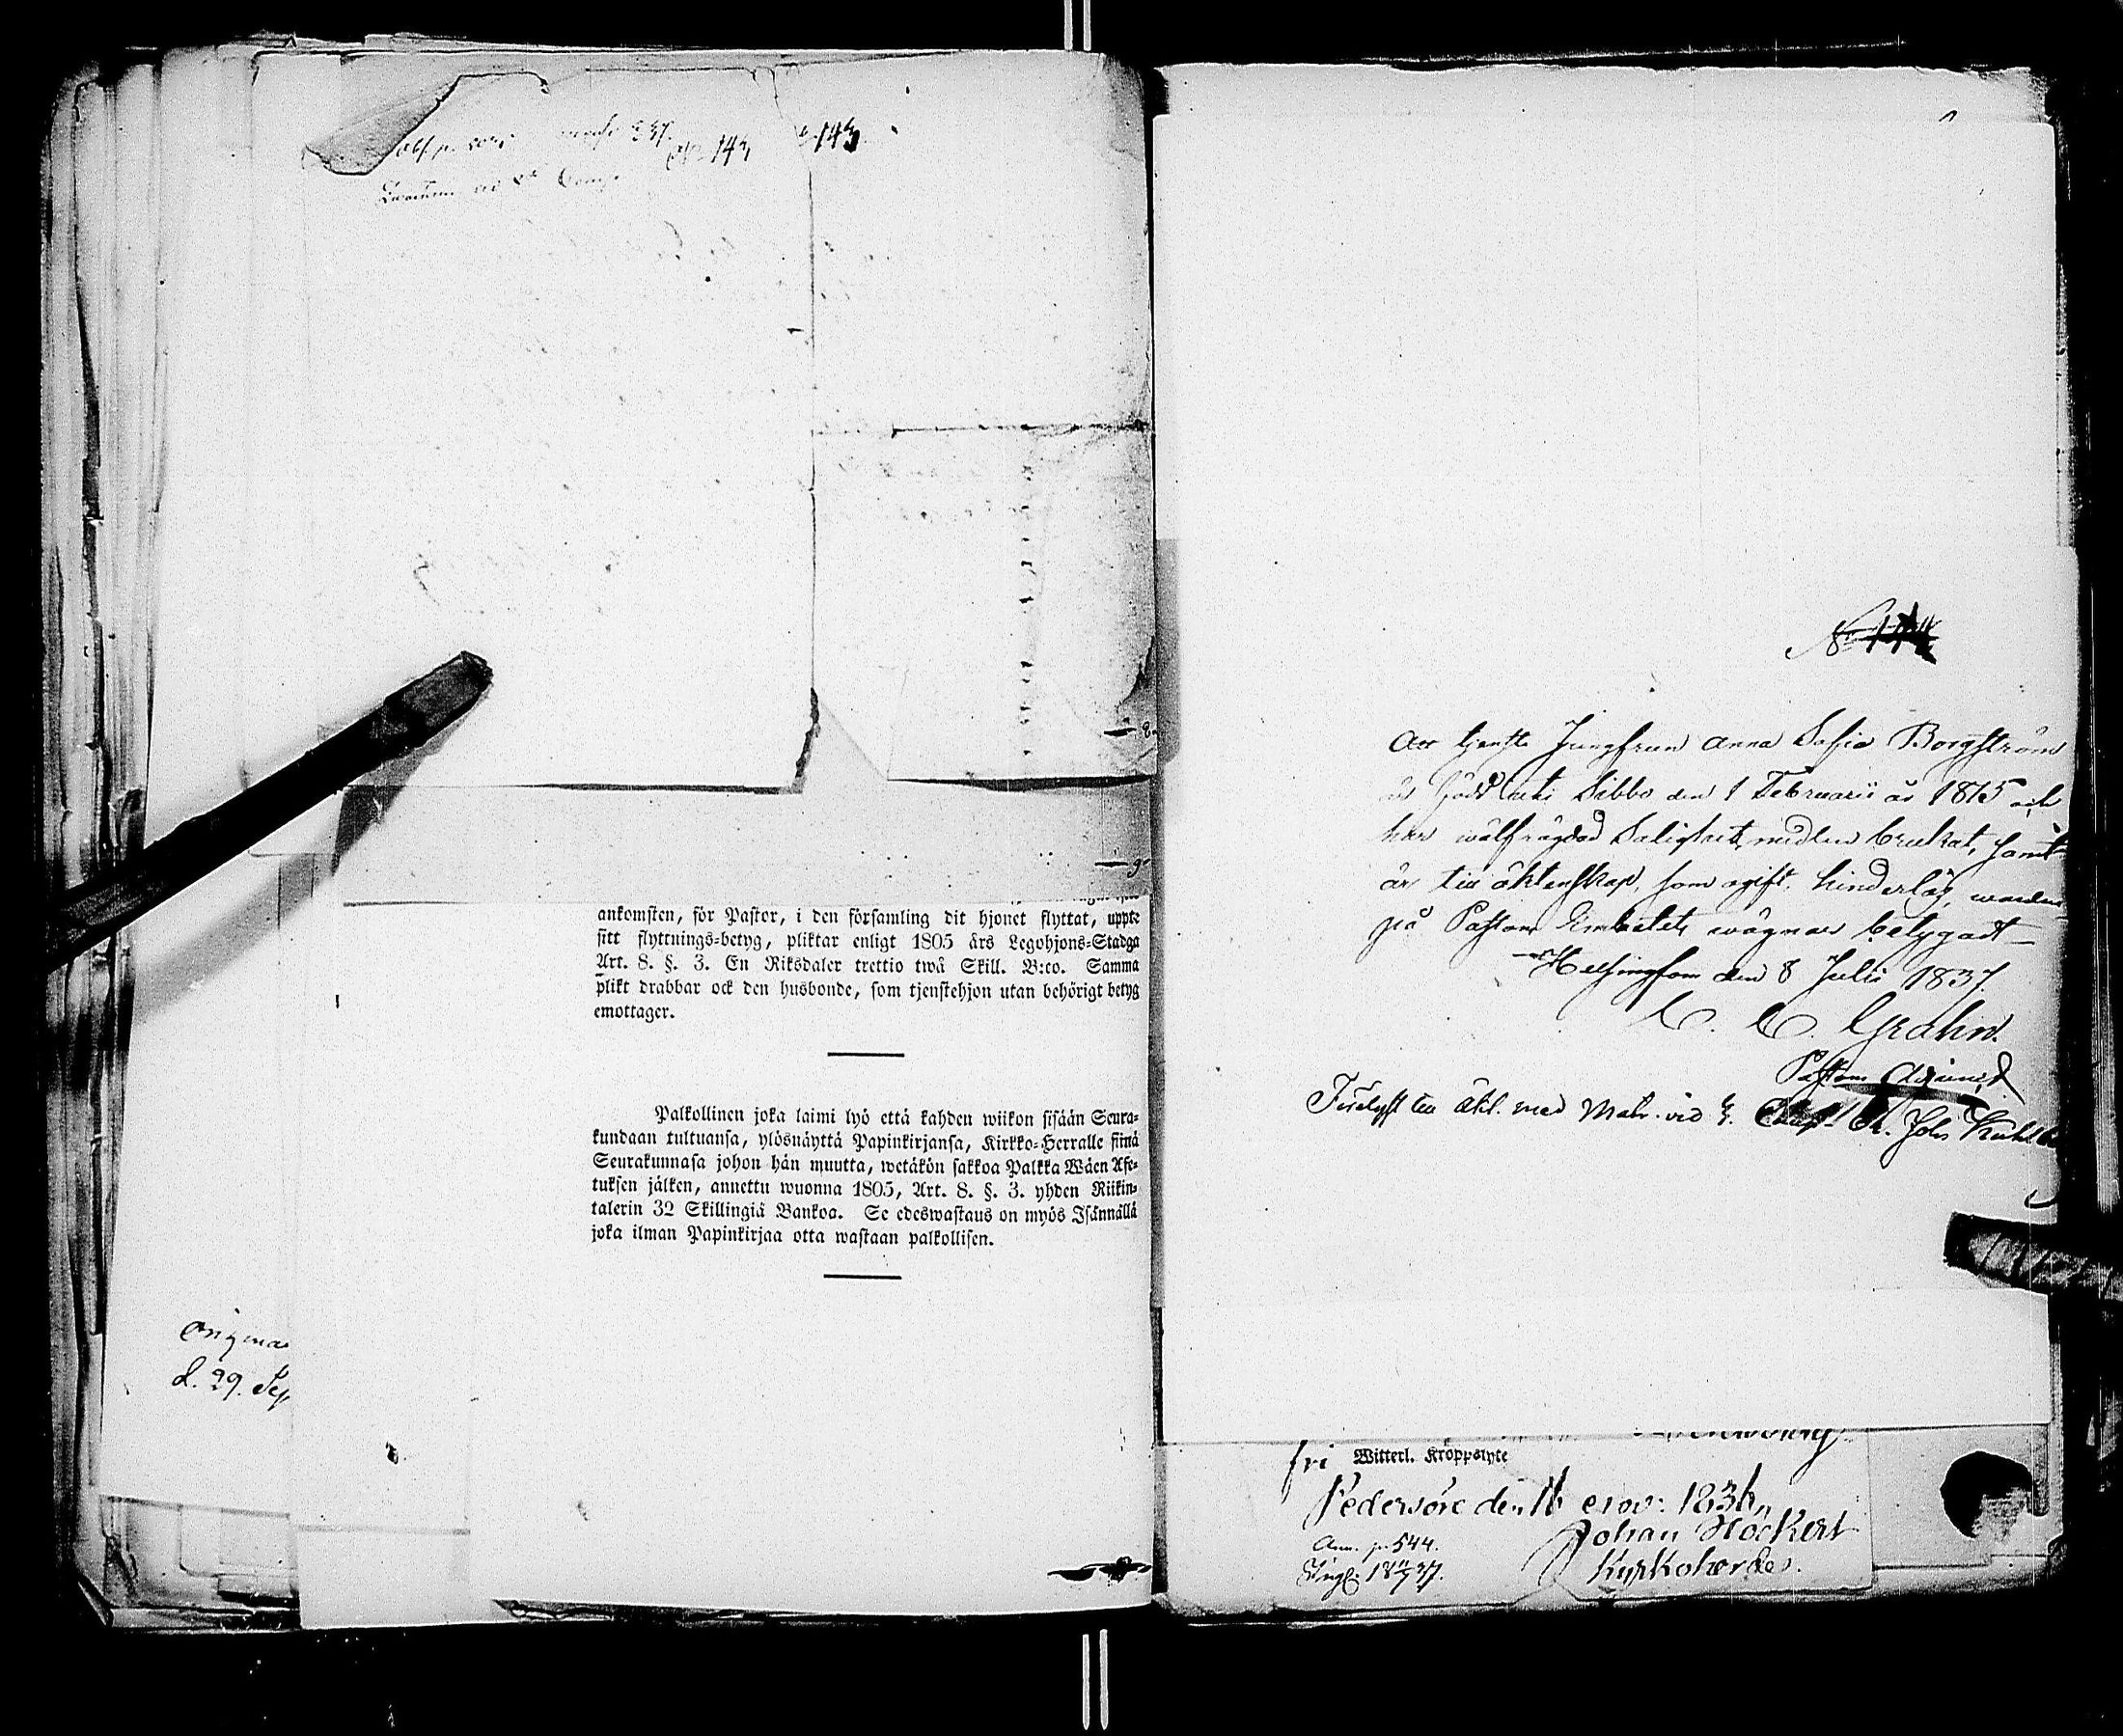 143
143
ankomsten, för Pastor, i den församling dit hjonet flyttat, uppte
sitt flyttnings-betyg, pliktar enligt 1805 års Legohjons-Stadga
Art. 8. §. 3. En Riksdaler trettio twå Skill. B:co. Samma
plikt drabbar ock den husbonde, som tjenstehjon utan behörigt betyg
emottager.
Palkollinen joka laimi lyö että kahden wiikon sisään Seura-
kundaan tultuansa, ylösnäyttä Papinkirjansa, Kirkko-Herralle siinä
Seurakunnasa johon hän muutta, wetäkön sakkoa Palkka Wäen Ase-
tuksen jälken, annettu wuonna 1805, Art. 8. §. 3. yhden Riikin-
talerin 32 Skillingiä Bankoa. Se edeswastaus on myös Isännällä
joka ilman Papinkirjaa otta wastaan palkollisen.
d. 29. Sep
Att tjenste Jungfrun Anna Sofia Borgström
är född uti Sibbo den 1 Februarii år 1815 och
har wälfrägdad Salighets medlen brukat, samt
är till äktenskap, som ogift, hinderlös, warder
på Pastors Embetets wägnar betygadt
Helsingfors den 8 Julii 1837.
C. C. Grahn.
Pastors Adjunct
till äkt. med Matr. vid Joh
fri Witterl. Kroppslyte
Pedersöre den 16 nov: 1836,
Johan Hockert
Ann. p. 544.
Kyrkoherde.